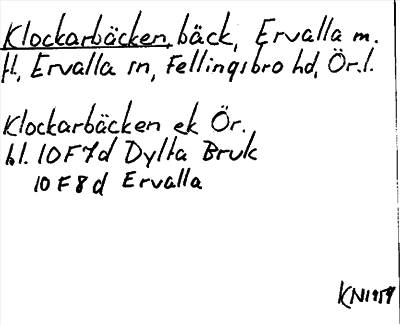 Klockarbäcken, bäck, Ervalla m.
fl, Ervalla sn, Fellingsbro hd, Ör.l.
Klockarbäcken ek Ör.
bl. 10F7d Dylta Bruk
10F8d Ervalla